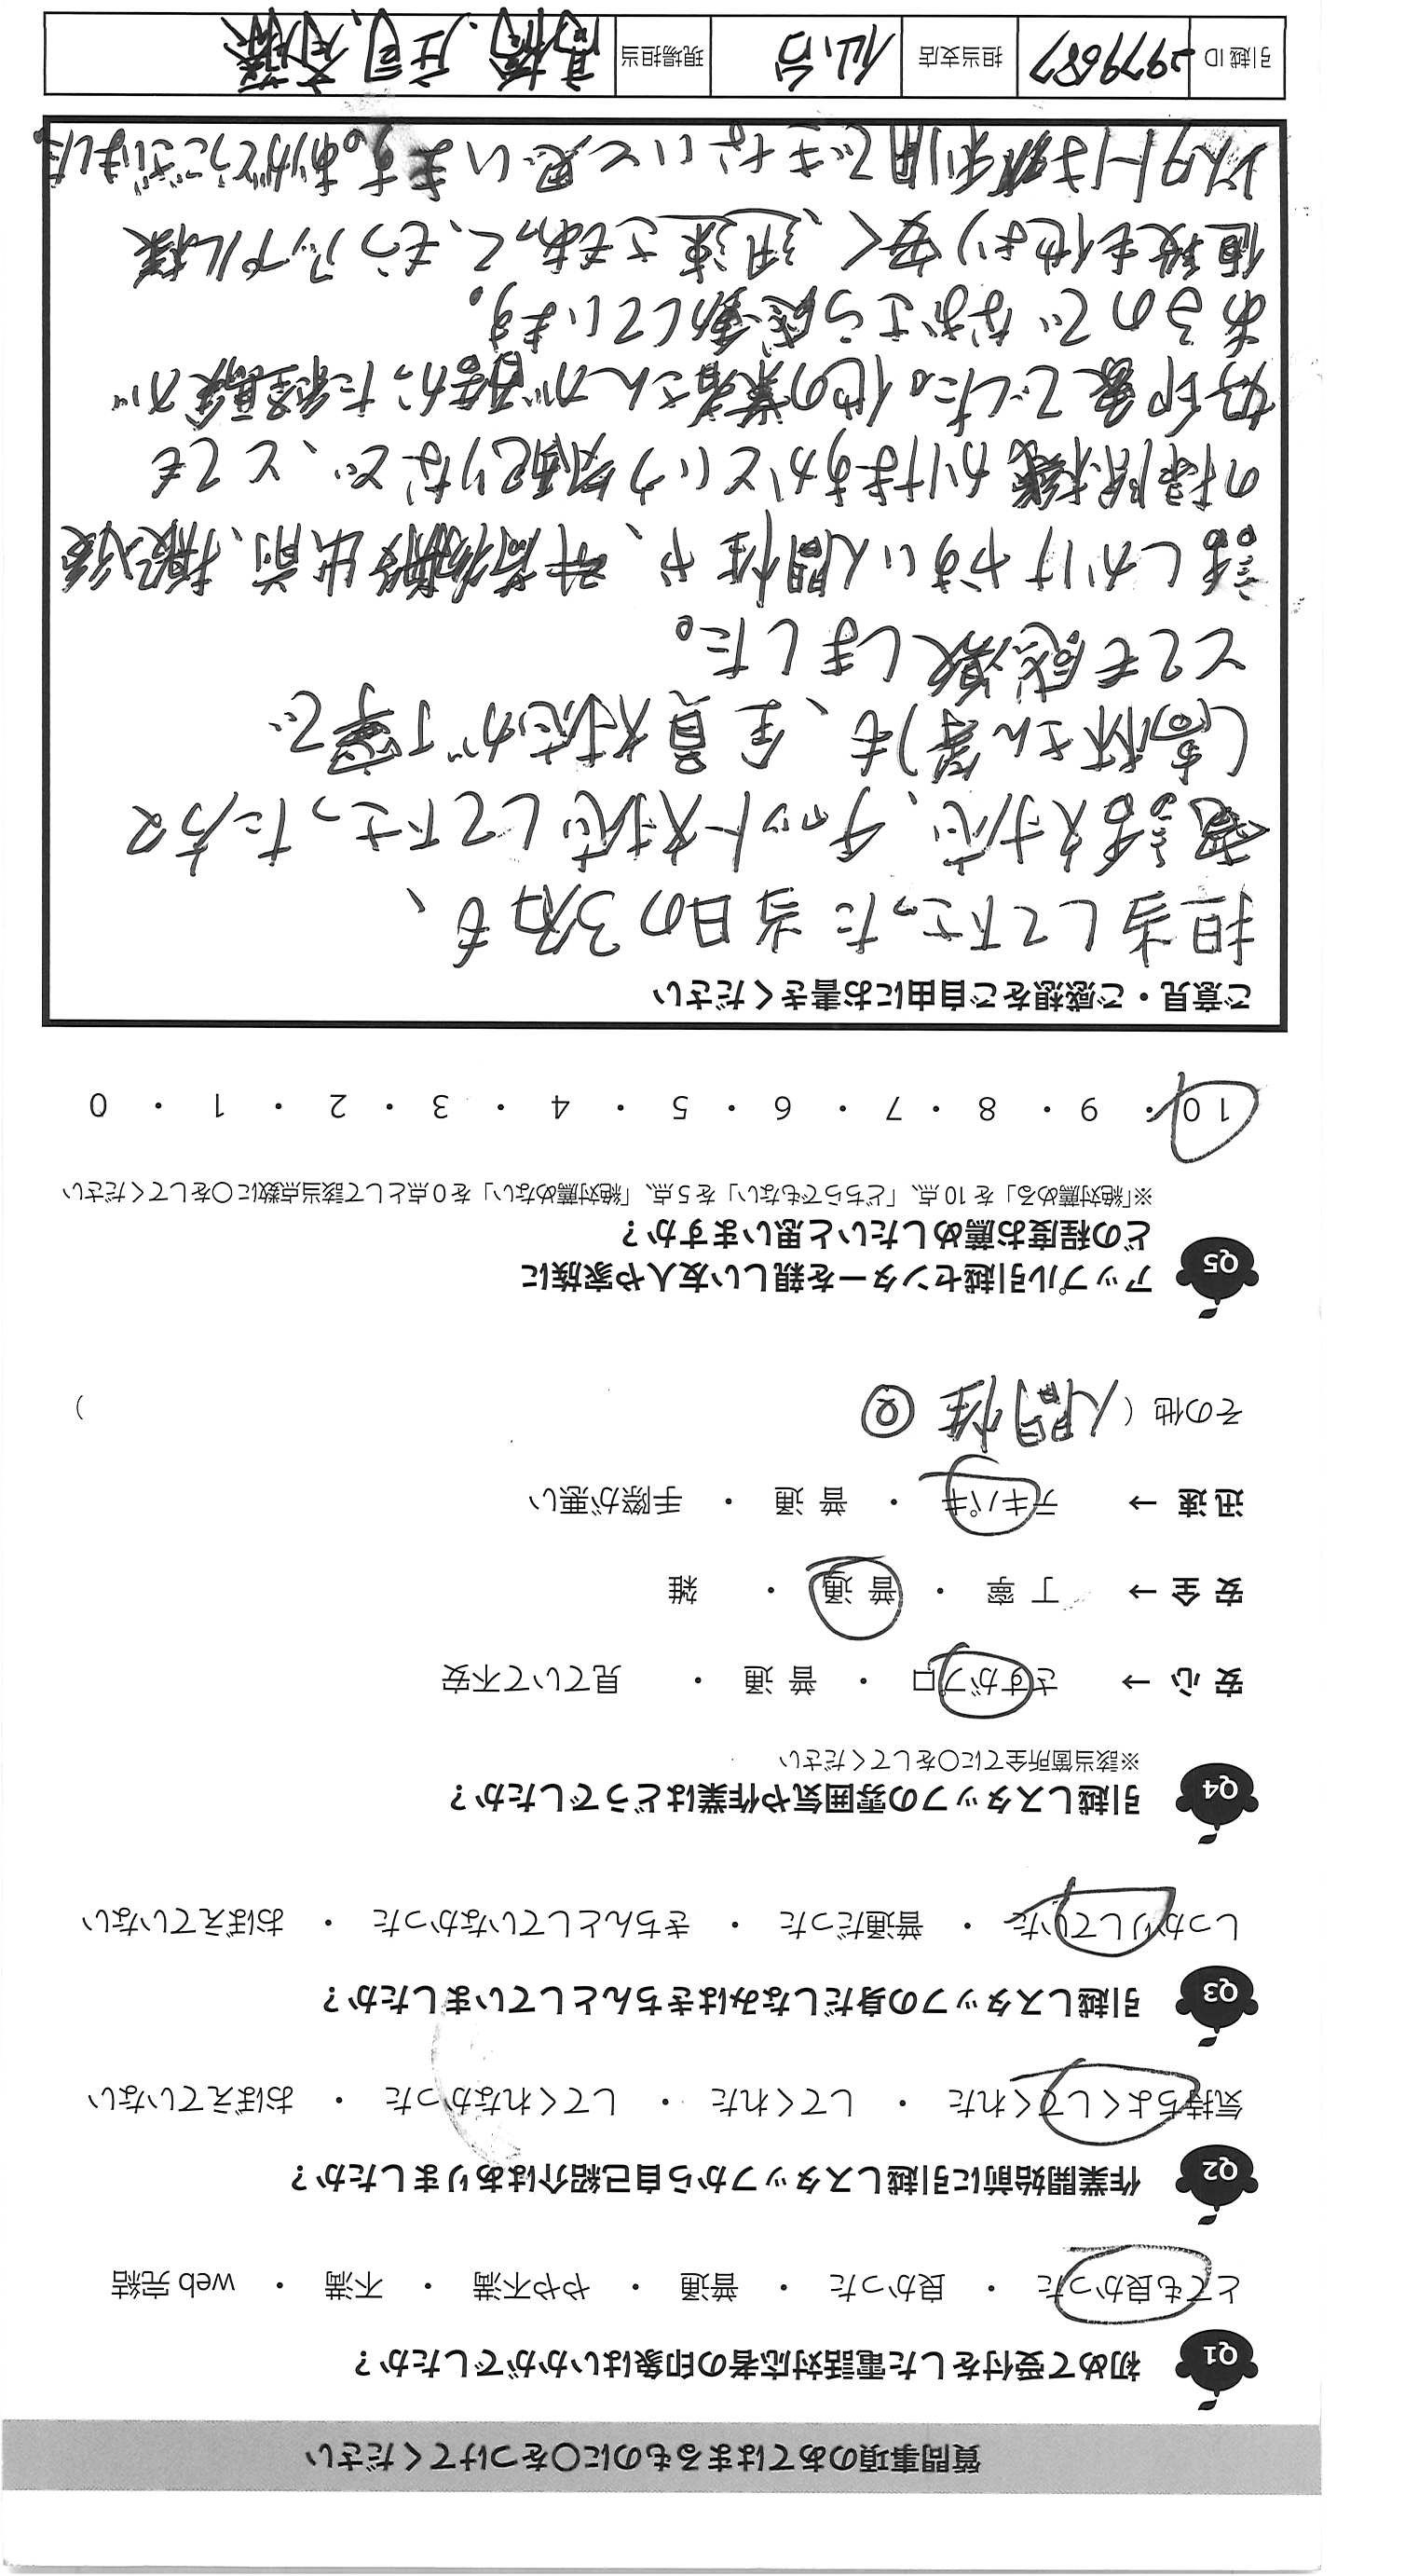 質問事項のあてはまるものに○をつけてください
Q1 初めて受付をした電話対応者の印象はいかがでしたか？
とても良かった ・ 良かった ・ 普通 ・ やや不満 ・ 不満 ・ web完結
Q2 作業開始前に引越しスタッフから自己紹介はありましたか？
気持ちよくしてくれた ・ してくれた ・ してくれなかった ・ おぼえていない
Q3 引越しスタッフの身だしなみはきちんとしていましたか？
しっかりしていた ・ 普通だった ・ きちんとしていなかった ・ おぼえていない
Q4 引越しスタッフの雰囲気や作業はどうでしたか？
※該当箇所全てに○をしてください
安心 → さすがプロ ・ 普通 ・ 見ていて不安
安全 → 丁寧 ・ 普通 ・ 雑
迅速 → テキパキ ・ 普通 ・ 手際が悪い
その他（人間性 ）
Q5 アップル引越センターを親しい友人や家族に
どの程度お薦めしたいと思いますか？
※「絶対薦める」を10点、「どちらでもない」を5点、「絶対薦めない」を0点として該当点数に○をしてください
10 ・ 9 ・ 8 ・ 7 ・ 6 ・ 5 ・ 4 ・ 3 ・ 2 ・ 1 ・ 0
ご意見・ご感想をご自由にお書きください
担当して下さった当日の3名も、
電話対応、チャット対応して下さった方々
(高林さん等)も、全員対応が丁寧で
とても感激しました。
話しかけやすい人間性や、荷物搬出前、搬入後
の掃除機かけまあかという気配りなど、とても
好印象でした。他の業者さんが酷かった経験が
あるのでなおさら感動しています。
値段も他より安く、迅速さもあって、もうアップル様
以外は利用できないと思います。ありがとうございました。
引越ID 2979687 担当支店 仙台 現場担当 高橋、庄司、斉藤様